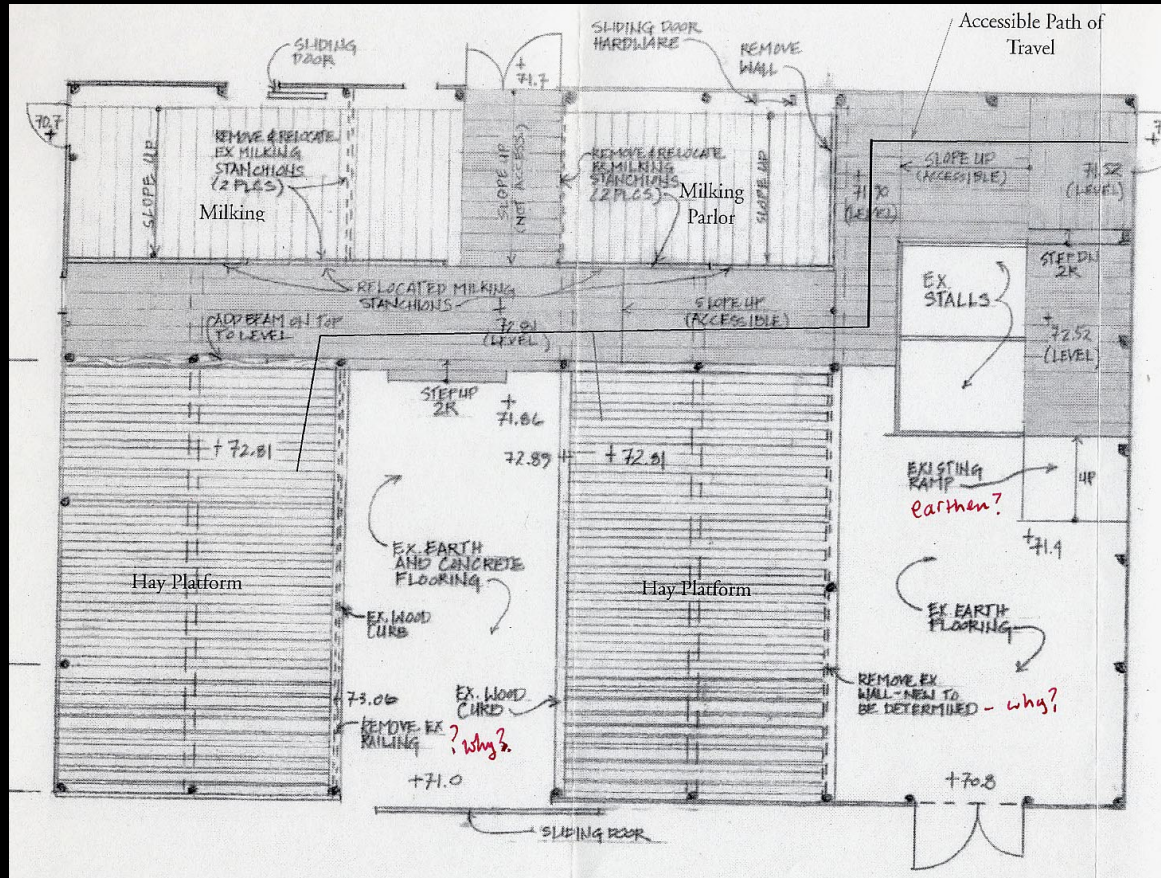 Accessible Path of
Travel
SLIDING
DOOR
SLIDING DOOR
HARDWARE
REMOVE
WALL
+
71.7
70.7
+
SLOPE UP
REMOVE & RELOCATE
EX MILKING
STANCHIONS
(2 PLCS)
Milking
SLOPE UP
(NOT ACCESS.)
REMOVE & RELOCATE
EX MILKING
STANCHIONS
(2 PLCS)
Milking
Parlor
SLOPE UP
+
71.90
(LEVEL)
SLOPE UP
(ACCESSIBLE)
71.52
(LEVEL)
STEP DN
2R
EX.
STALLS
+
72.52
(LEVEL)
RELOCATED MILKING
STANCHIONS
ADD BEAM ON TOP
TO LEVEL
+
72.81
(LEVEL)
SLOPE UP
(ACCESSIBLE)
STEP UP
2R
+
71.86
+ 72.81
72.89 +
+ 72.81
EXISTING
RAMP
earthen?
UP
+
71.4
EX. EARTH
AND CONCRETE
FLOORING
Hay Platform
Hay Platform
EX. WOOD
CURB
EX EARTH
FLOORING
EX. WOOD
CURB
+73.06
REMOVE EX
RAILING
? why?
REMOVE EX
WALL - NEW TO
BE DETERMINED - why?
+71.0
+70.8
SLIDING DOOR